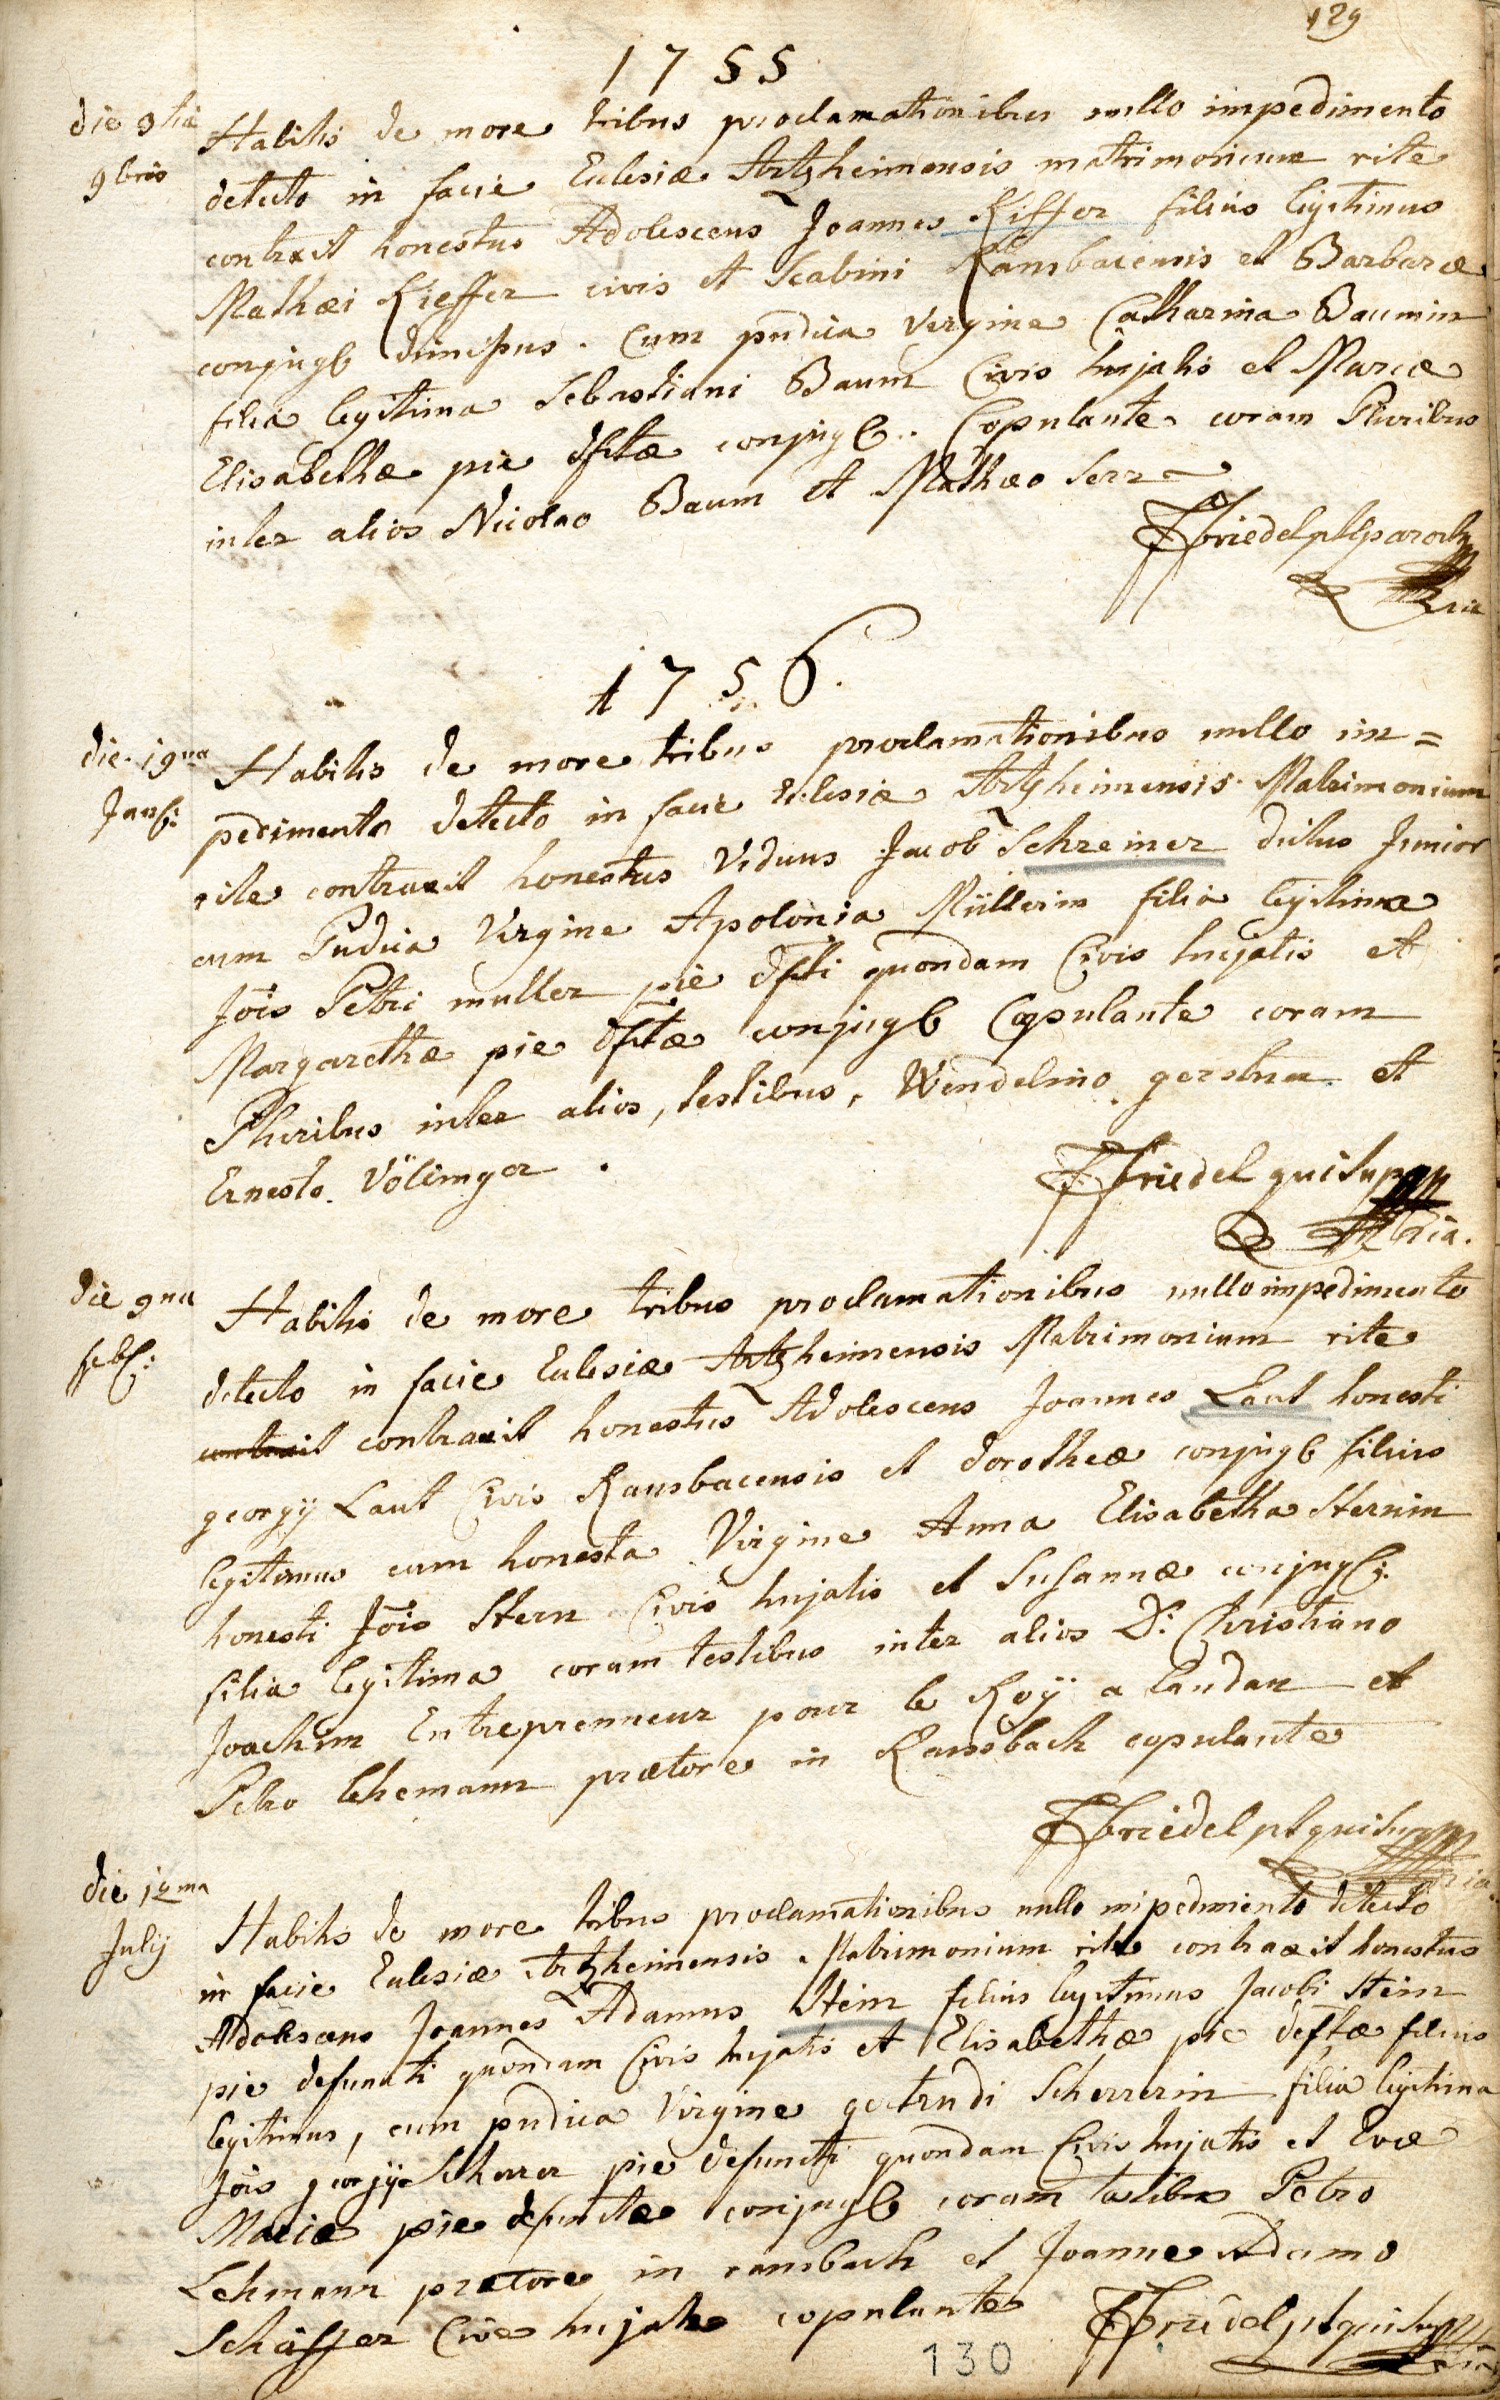 129
1755
die 3tia
9bris
Habitis de more tribus proclamationibus nullo impedimento
detecto in facie Eclesiæ Artzheimensis matrimonium rite
contraxit honestus Adolescens Joannes Kiffer filius legitimus
Mathæi Kieffer civis et Scabini Ransbacensis et Barbaræ
conjugb Cum pudica Virgine Catharina Baumin
filia legitima Sebastiani Baum Civis hujatis et Mariæ
Elisabethæ pie dftæ conjugb. Copulante coram Pluribus
inter alios Nicolao Baum et Mathæo Serr
FFriedel pt parochy
1756.
die 19na
Janr:
Habitis de more tribus proclamationibus nullo im=
pedimento detecto in facie Eclesiæ Artzheimensis Matrimonium
rite contraxit honestus Viduus Jacob Schreiner dictus Junior
cum Pudica Virgine Apolonia Müllerin filia legitima
Jois Petri muller pie dfti quondam Civis hujatis et
Margarethæ pie dftæ conjugb Copulante coram
Pluribus inter alios, testibus, Wendelino gerstner et
Ernesto Völinger.
FFriedel qui supra
die 9na
febr:
Habitis de more tribus proclamationibus nullo impedimento
detecto in facie Eclesiæ Artzheimensis Matrimonium rite
contraxit contraxit honestus Adolescens Joannes Laut honesti
georgÿ Laut Civis Ransbacensis et dorotheæ conjugb filius
legitimus cum honesta Virgine Anna Elisabetha Sternin
honesti Jois Stern Civis hujatis et Susannæ conjugb:
filia legitima coram testibus inter alios D: Christiano
Joachim Entreprenneur pour le Roÿ a landau et
Petro lehemann prætore in Ransbach copulante
FFriedel pt qui supra
die 12ma
Julÿ
Habitis de more tribus proclamationibus nullo impedimento detecto
in facie Eclesiæ Artzheimensis Matrimonium rite contraxit honestus
Adolescens Joannes Adamus Stein filius legitimus Jacobi Stein
pie defuncti quondam Civis hujatis et Elisabethæ pie deftæ filius
legitimus, cum pudica Virgine gertrudi Scherrerin filia legitima
Jois georgÿ Scherrer pie defuncti quondam Civis hujatis et Evæ
Mariæ pie defunctæ conjugb coram testibus Petro
Lehmann prætore in ransbach et Joanne Adamo
Schäffer Cive hujate copulante
FFriedel pt qui supra
130